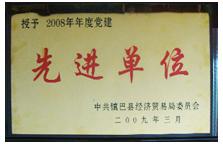 授予 2008年年度党建
先进单位
中共镇巴县经济贸易局委员会
二00九年三月